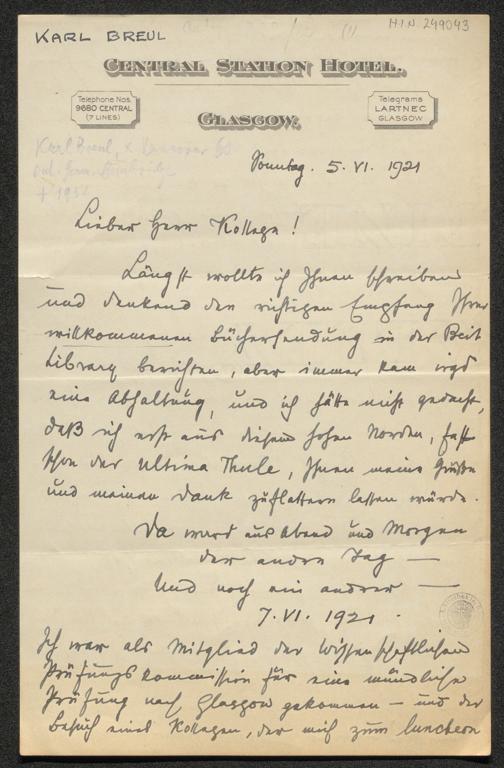 KARL BREUL
H.I.N. 249043
CENTRAL STATION HOTEL.
Telephone Nos.
9680 CENTRAL
(7 LINES)
GLASGOW.
Telegrams
LARTNEC
GLASGOW
Karl Breul, Hannover 60
† 19
Sonntag. 5. VI. 1921
Lieber Herr Kollege!
Längst wollte ich Ihnen schreiben
und dankend den richtigen Empfang Ihrer
willkommenen Büchersendung in der Beit
Library berichten, aber immer kam irgd
eine Abhaltung, und ich hätte nicht gedacht,
daß ich erst aus diesem hohen Norden, fast
schon der Ultima Thule, Ihnen meine Grüße
und meinen Dank zuflattern lassen würde.
Da ward aus Abend und Morgen
der andre Tag —
Und noch ein andrer —
7. VI. 1921.
Ich war als Mitglied der Wissenschaftlichen
Prüfungskommission für eine mündliche
Prüfung nach Glasgow gekommen — und der
Besuch eines Kollegen, der mich zum luncheon